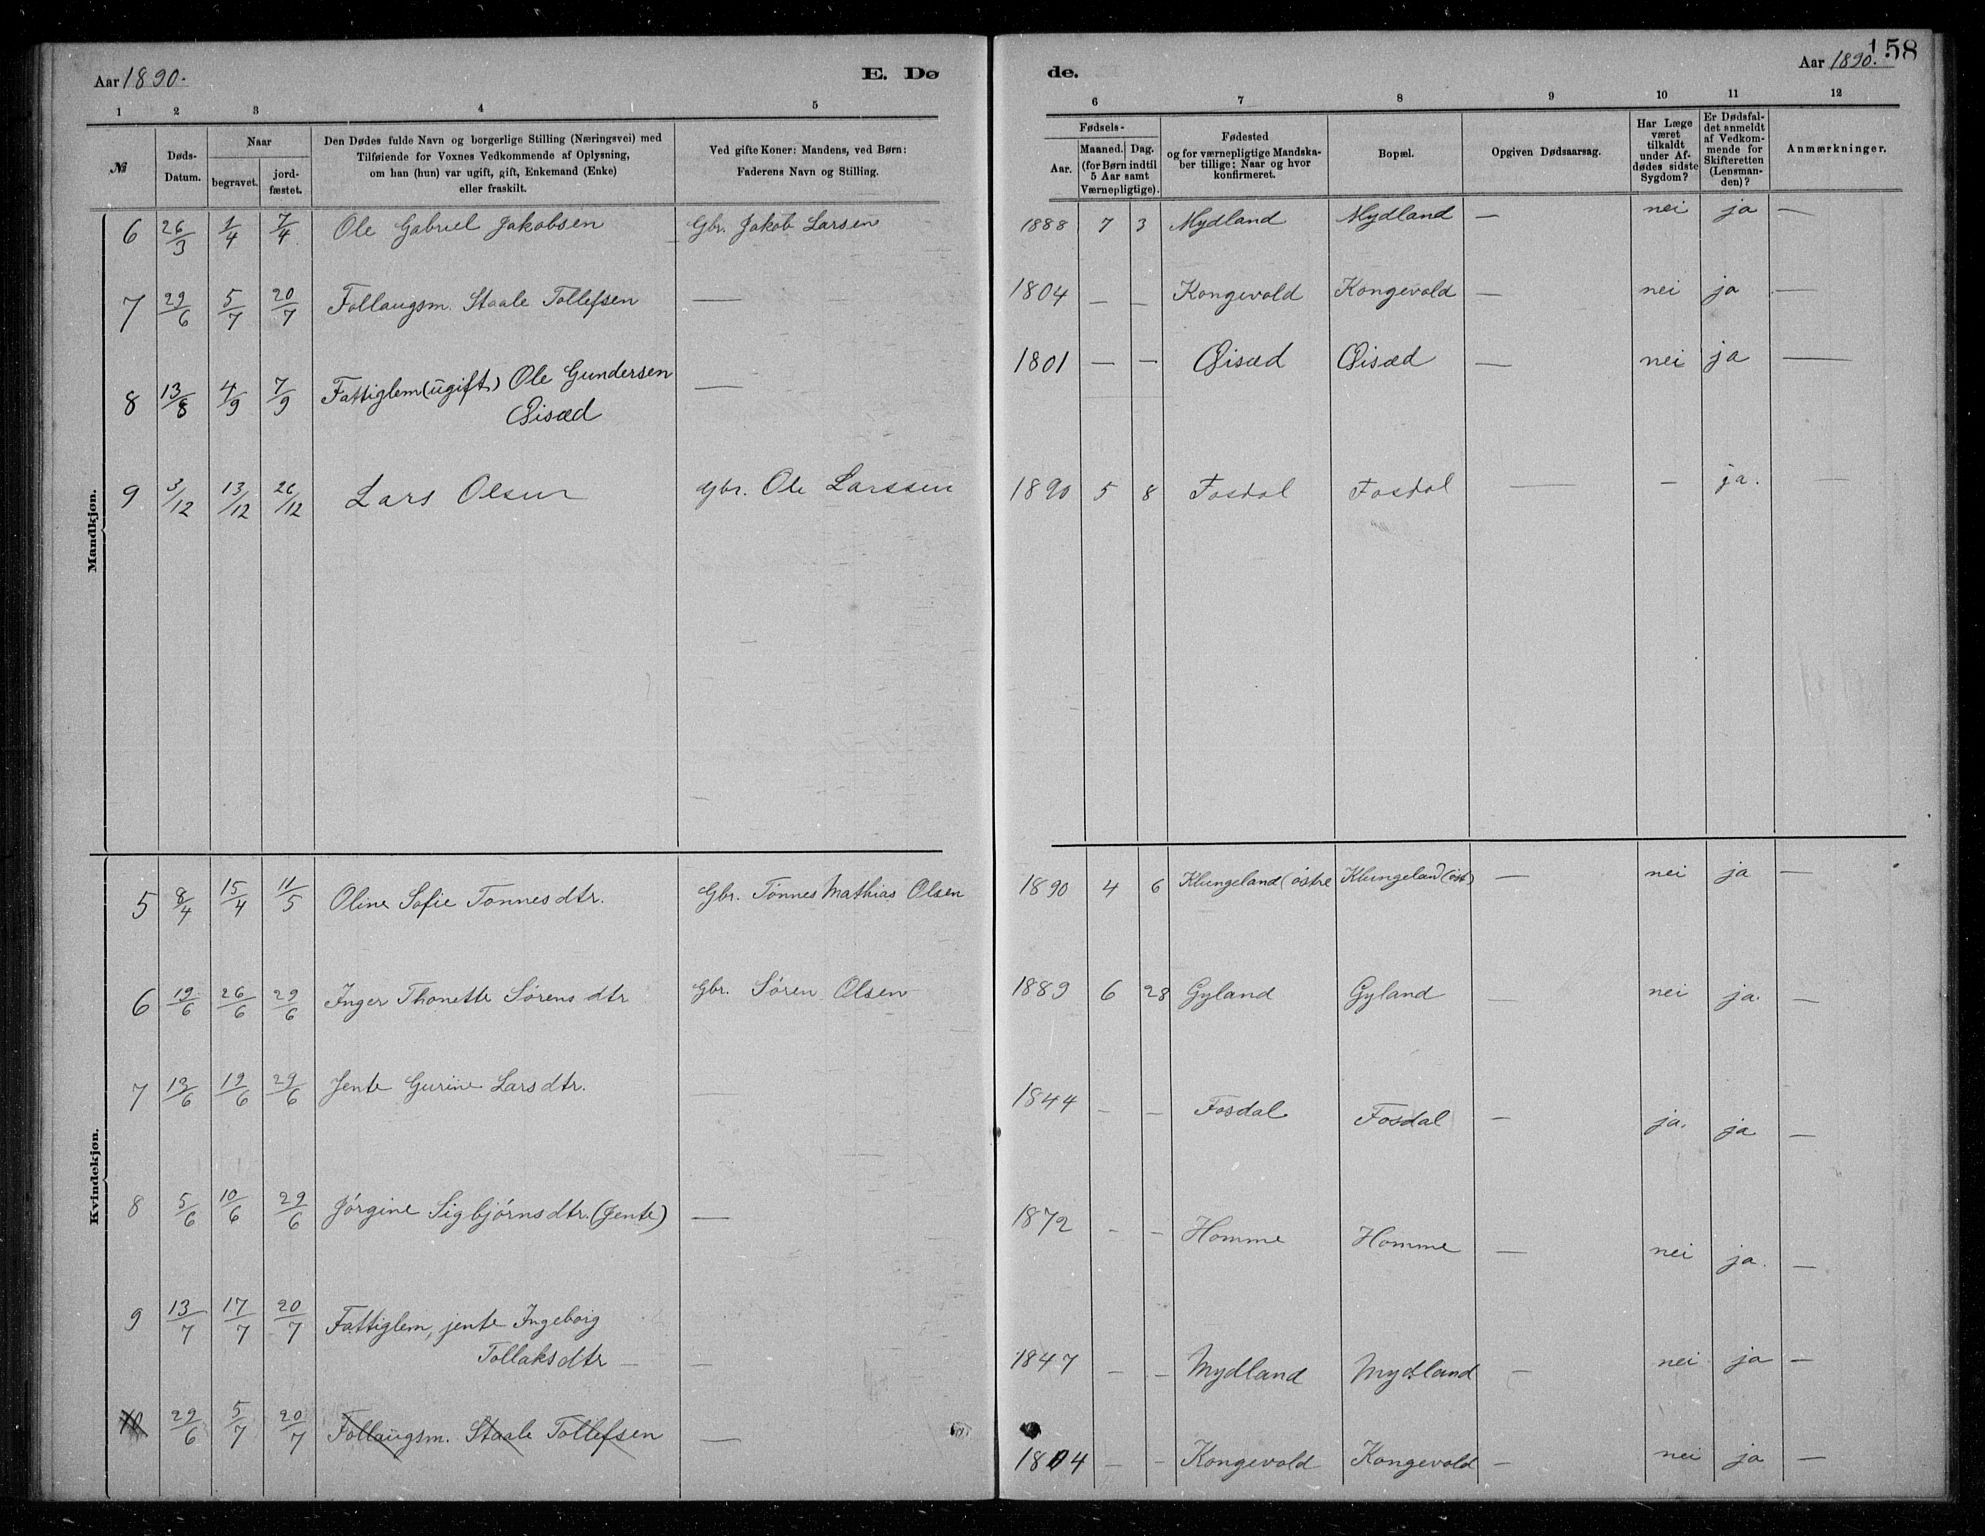 Aar 1890. E. Dø
de. Aar 1890. 158
1 2 3 4 5
6 7 8 9 10 11 12
№
Døds-
Datum.
Naar
begravet.
jord-
fæstet.
Den Dødes fulde Navn og borgerlige Stilling (Næringsvei) med
Tilføiende for Voxnes Vedkommende af Oplysning,
om han (hun) var ugift, gift, Enkemand (Enke)
eller fraskilt.
Ved gifte Koner: Mandens, ved Børn:
Faderens Navn og Stilling.
Fødsels-
Aar.
Maaned. Dag.
(for Børn indtil
5 Aar samt
Værnepligtige).
Fødested
og for værnepligtige Mandska-
ber tillige: Naar og hvor
konfirmeret.
Bopæl.
Opgiven Dødsaarsag.
Har Læge
været
tilkaldt
under Af-
dødes sidste
Sygdom?
Er Dødsfal-
det anmeldt
af Vedkom-
mende for
Skifteretten
(Lensman-
den)?
Anmærkninger.
Mandkjøn.
6 26/3 1/4 7/4 Ole Gabriel Jakobsen Gbr. Jakob Larsen 1888 7 3 Mydland Mydland — nei ja —
7 29/6 5/7 20/7 Follaugsm. Staale Tollefsen — 1804 — — Kongevold Kongevold — nei ja —
8 13/8 4/9 7/9 Fattiglem (ugift) Ole Gundersen — 1801 — — Øisæd Øisæd — nei ja —
Øisæd
9 3/12 13/12 26/12 Lars Olsen Gbr. Ole Larssen 1890 5 8 Fosdal Fosdal — — ja. —
Kvindekjøn.
5 8/4 15/4 11/5 Oline Sofie Tønnesdtr. Gbr. Tønnes Mathias Olsen 1890 4 6 Klungeland (østre Klungeland (øst) — nei ja —
6 19/6 26/6 29/6 Inger Thonette Sørensdtr Gbr. Søren Olsen 1889 6 28 Gyland Gyland — nei ja. —
7 13/6 19/6 29/6 Jente Gurine Larsdtr. — 1844 — — Fosdal Fosdal — ja. ja —
8 5/6 10/6 29/6 Jørgine Sigbjørnsdtr. (Jente) — 1872 — — Homme Homme — nei ja. —
9 13/7 17/7 20/7 Fattiglem, jente Ingeborg
Tollaksdtr — — 1847 — — Mydland Mydland — nei ja —
10 29/6 5/7 20/7 Follaugsm. Staale Tollefsen — 1804 — — Kongevold Kongevold — nei ja —